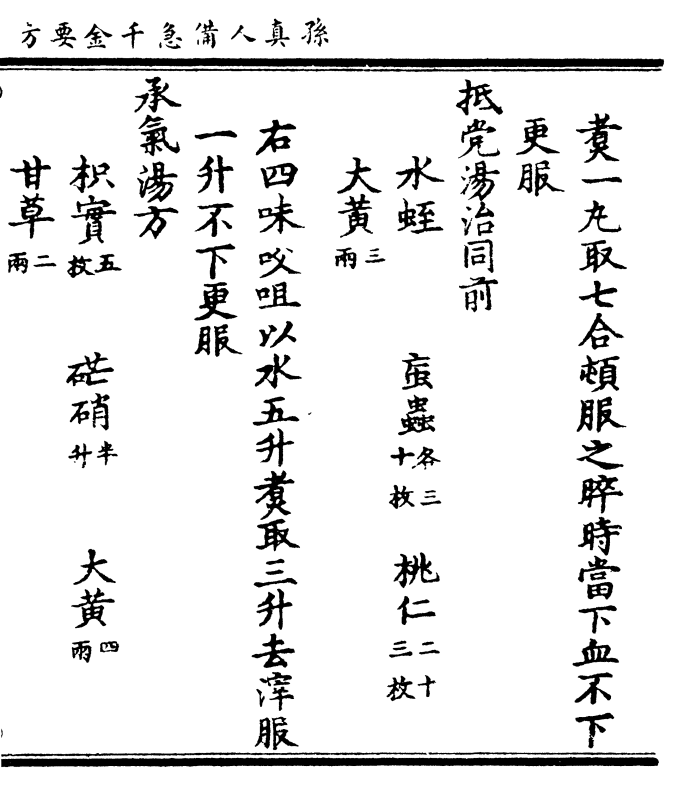 孫真人備急千金要方
煑一丸取七合頓服之晬時當下血不下
更服
抵党湯治同前
水蛭 䖟蟲各三十枚 桃仁二十三枚
大黄三兩
右四味㕮咀以水五升煑取三升去滓服
一升不下更服
承氣湯方
枳實五枚 硭硝半升 大黄四兩
甘草二兩